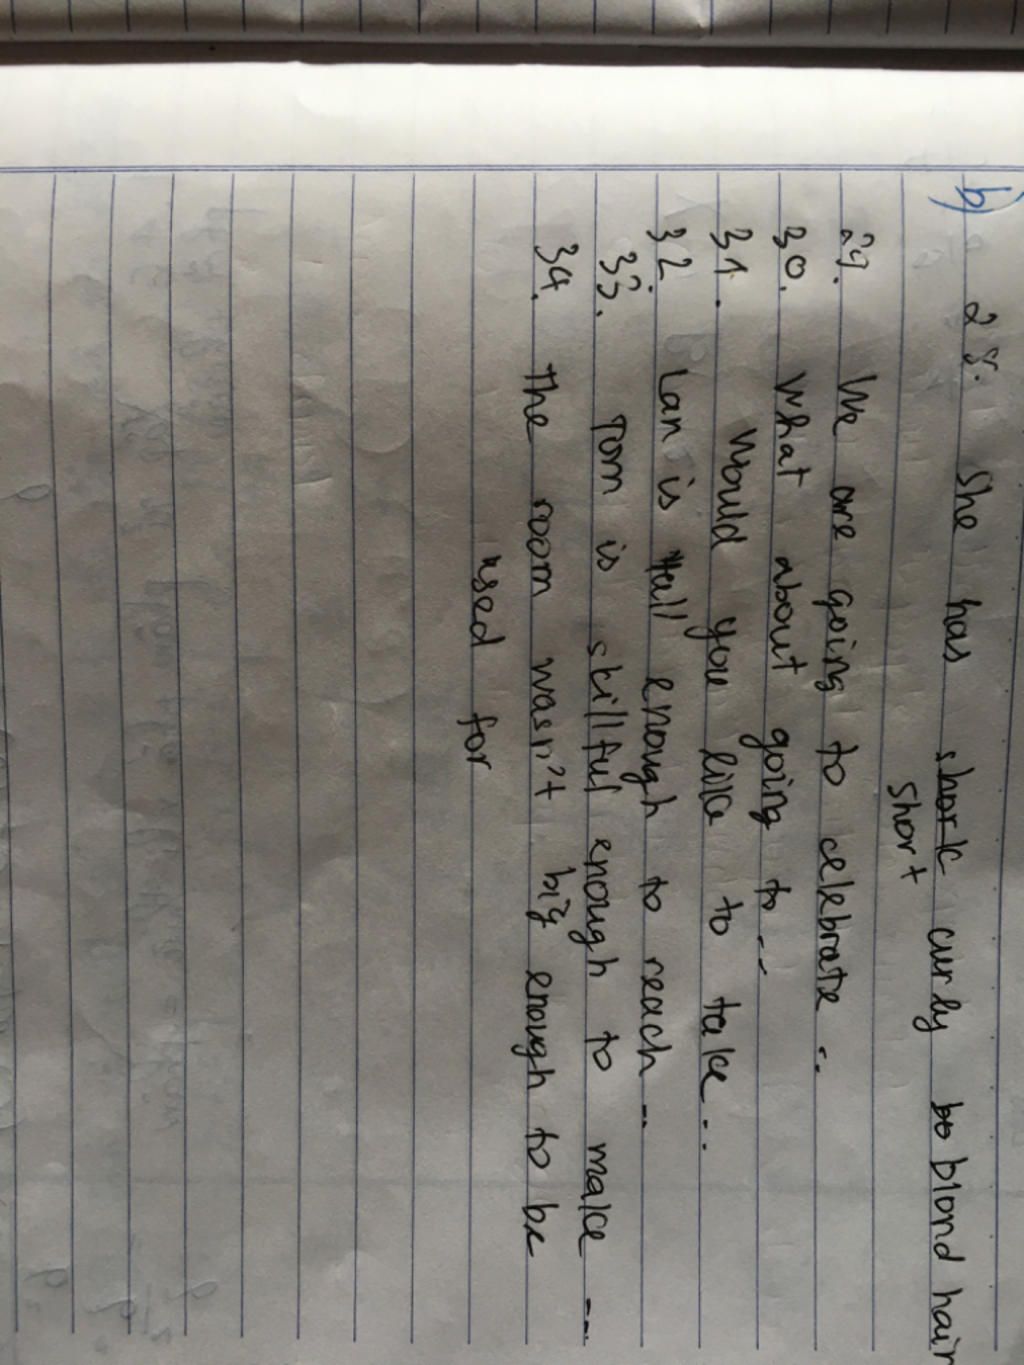 b) 28. She has short curly bo blond hair
short
29. We are going to celebrate ..
30. What about going to ..
31. Would you like to take ...
32. Lan is tall enough to reach ...
33. Tom is skillful enough to make ...
34. The room wasn't big enough to be
used for